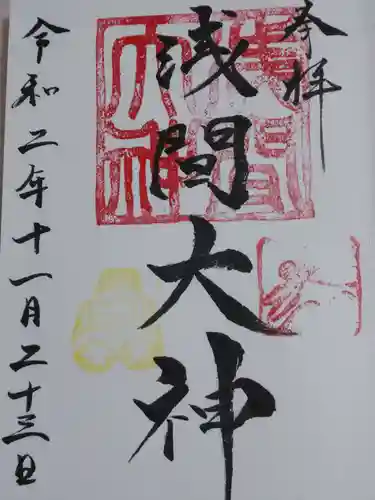 奉拝
浅間大神
令和二年十一月二十三日